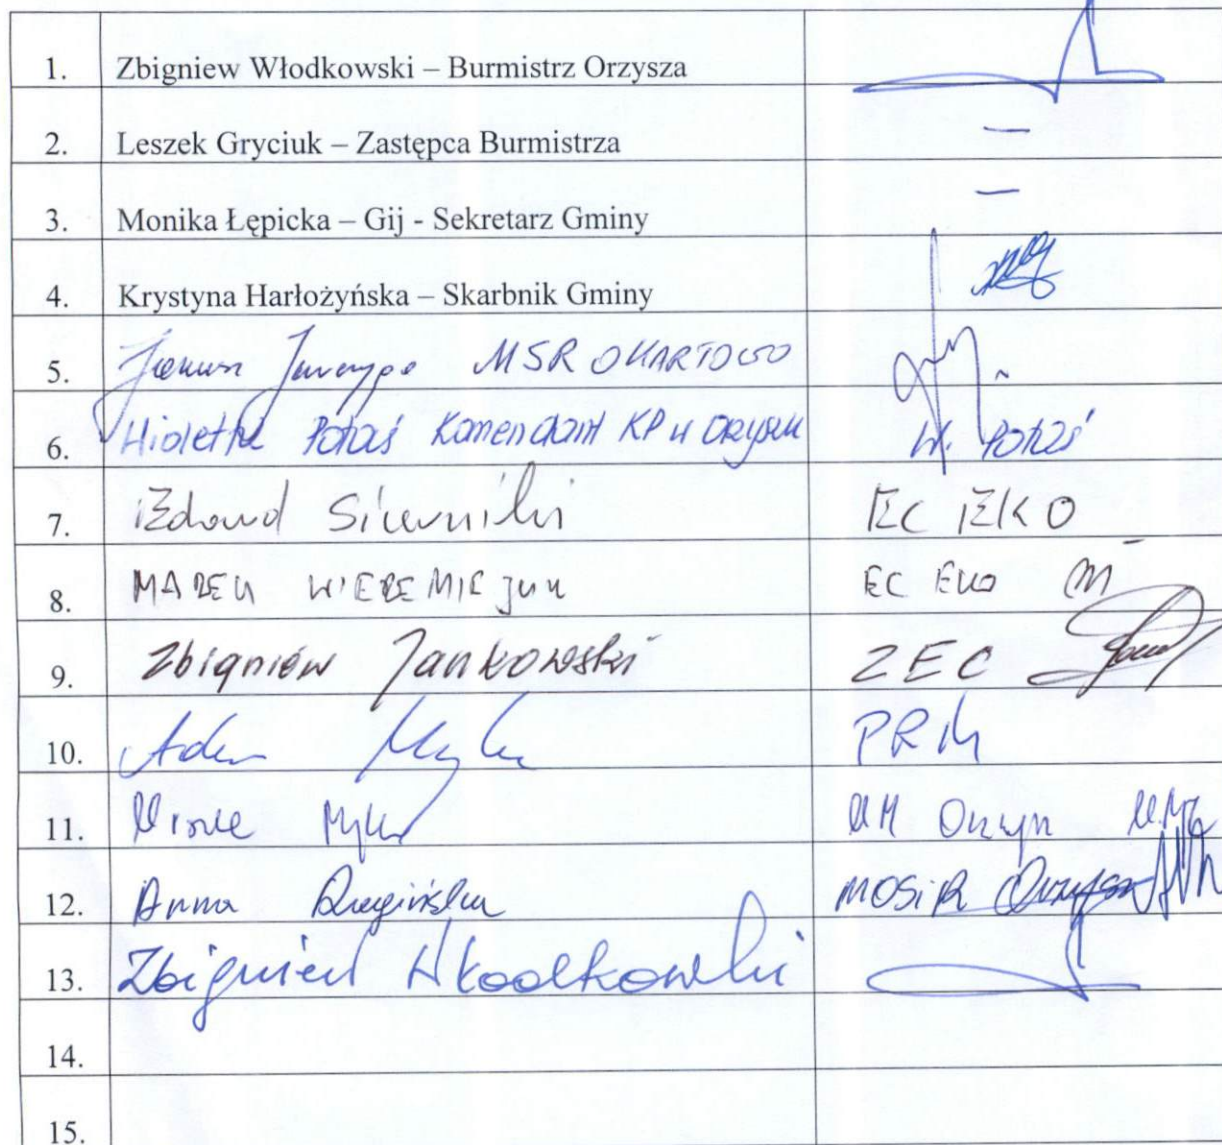 1. Zbigniew Włodkowski – Burmistrz Orzysza
2. Leszek Gryciuk – Zastępca Burmistrza —
3. Monika Łępicka – Gij - Sekretarz Gminy —
4. Krystyna Harłożyńska – Skarbnik Gminy
5. MSR OKARTOWO
6. Wioletta Potaś Komendant KP w Orzyszu W. Potaś
7. Edward EC EKO
8. MAREK WIEREMIEJUK EC EKO
9. Zbigniew Jankowski ZEC
10. Adam PRM
11. UM Orzysz
12. Anna MOSiR Orzysz
13. Zbigniew Włodkowski
14.
15.